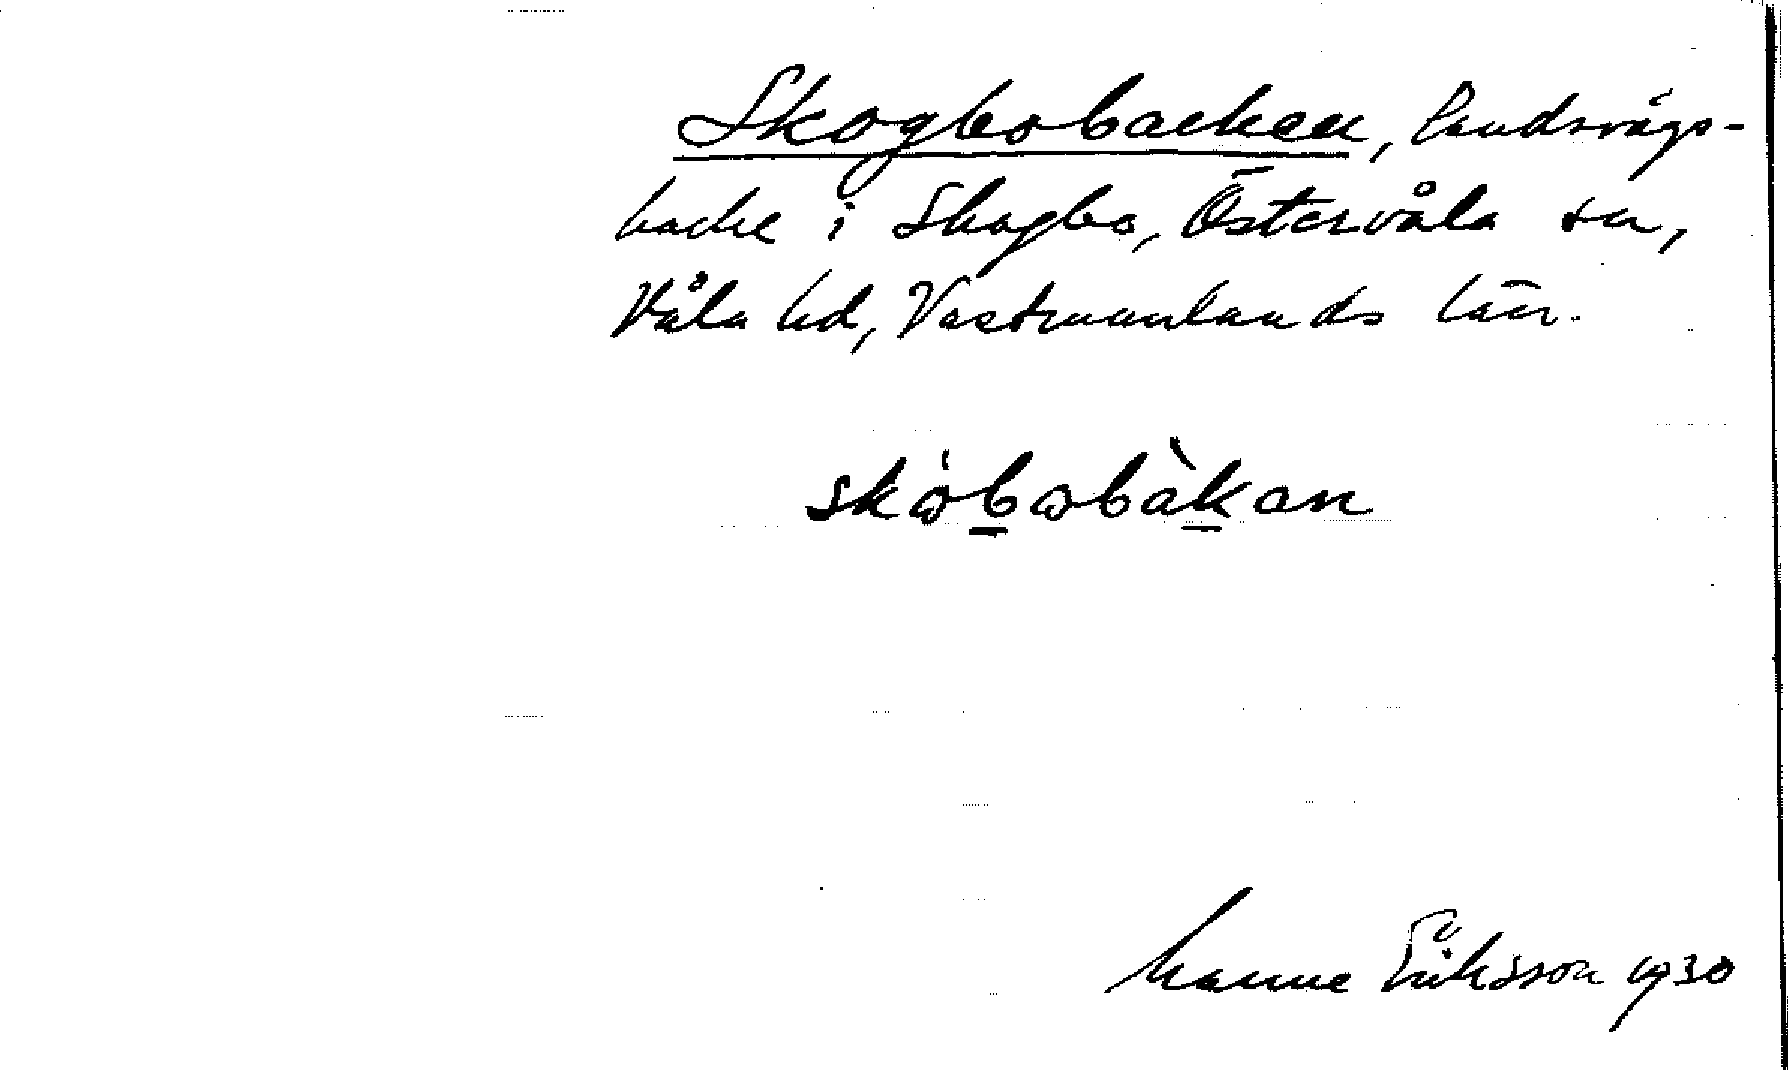 Skogbobacken, landsvägs-
backe i Skogbo, Östervåla sn,
Våla hd, Västmanlands län.
skω̇bωbàkan
Manne Eriksson 1930